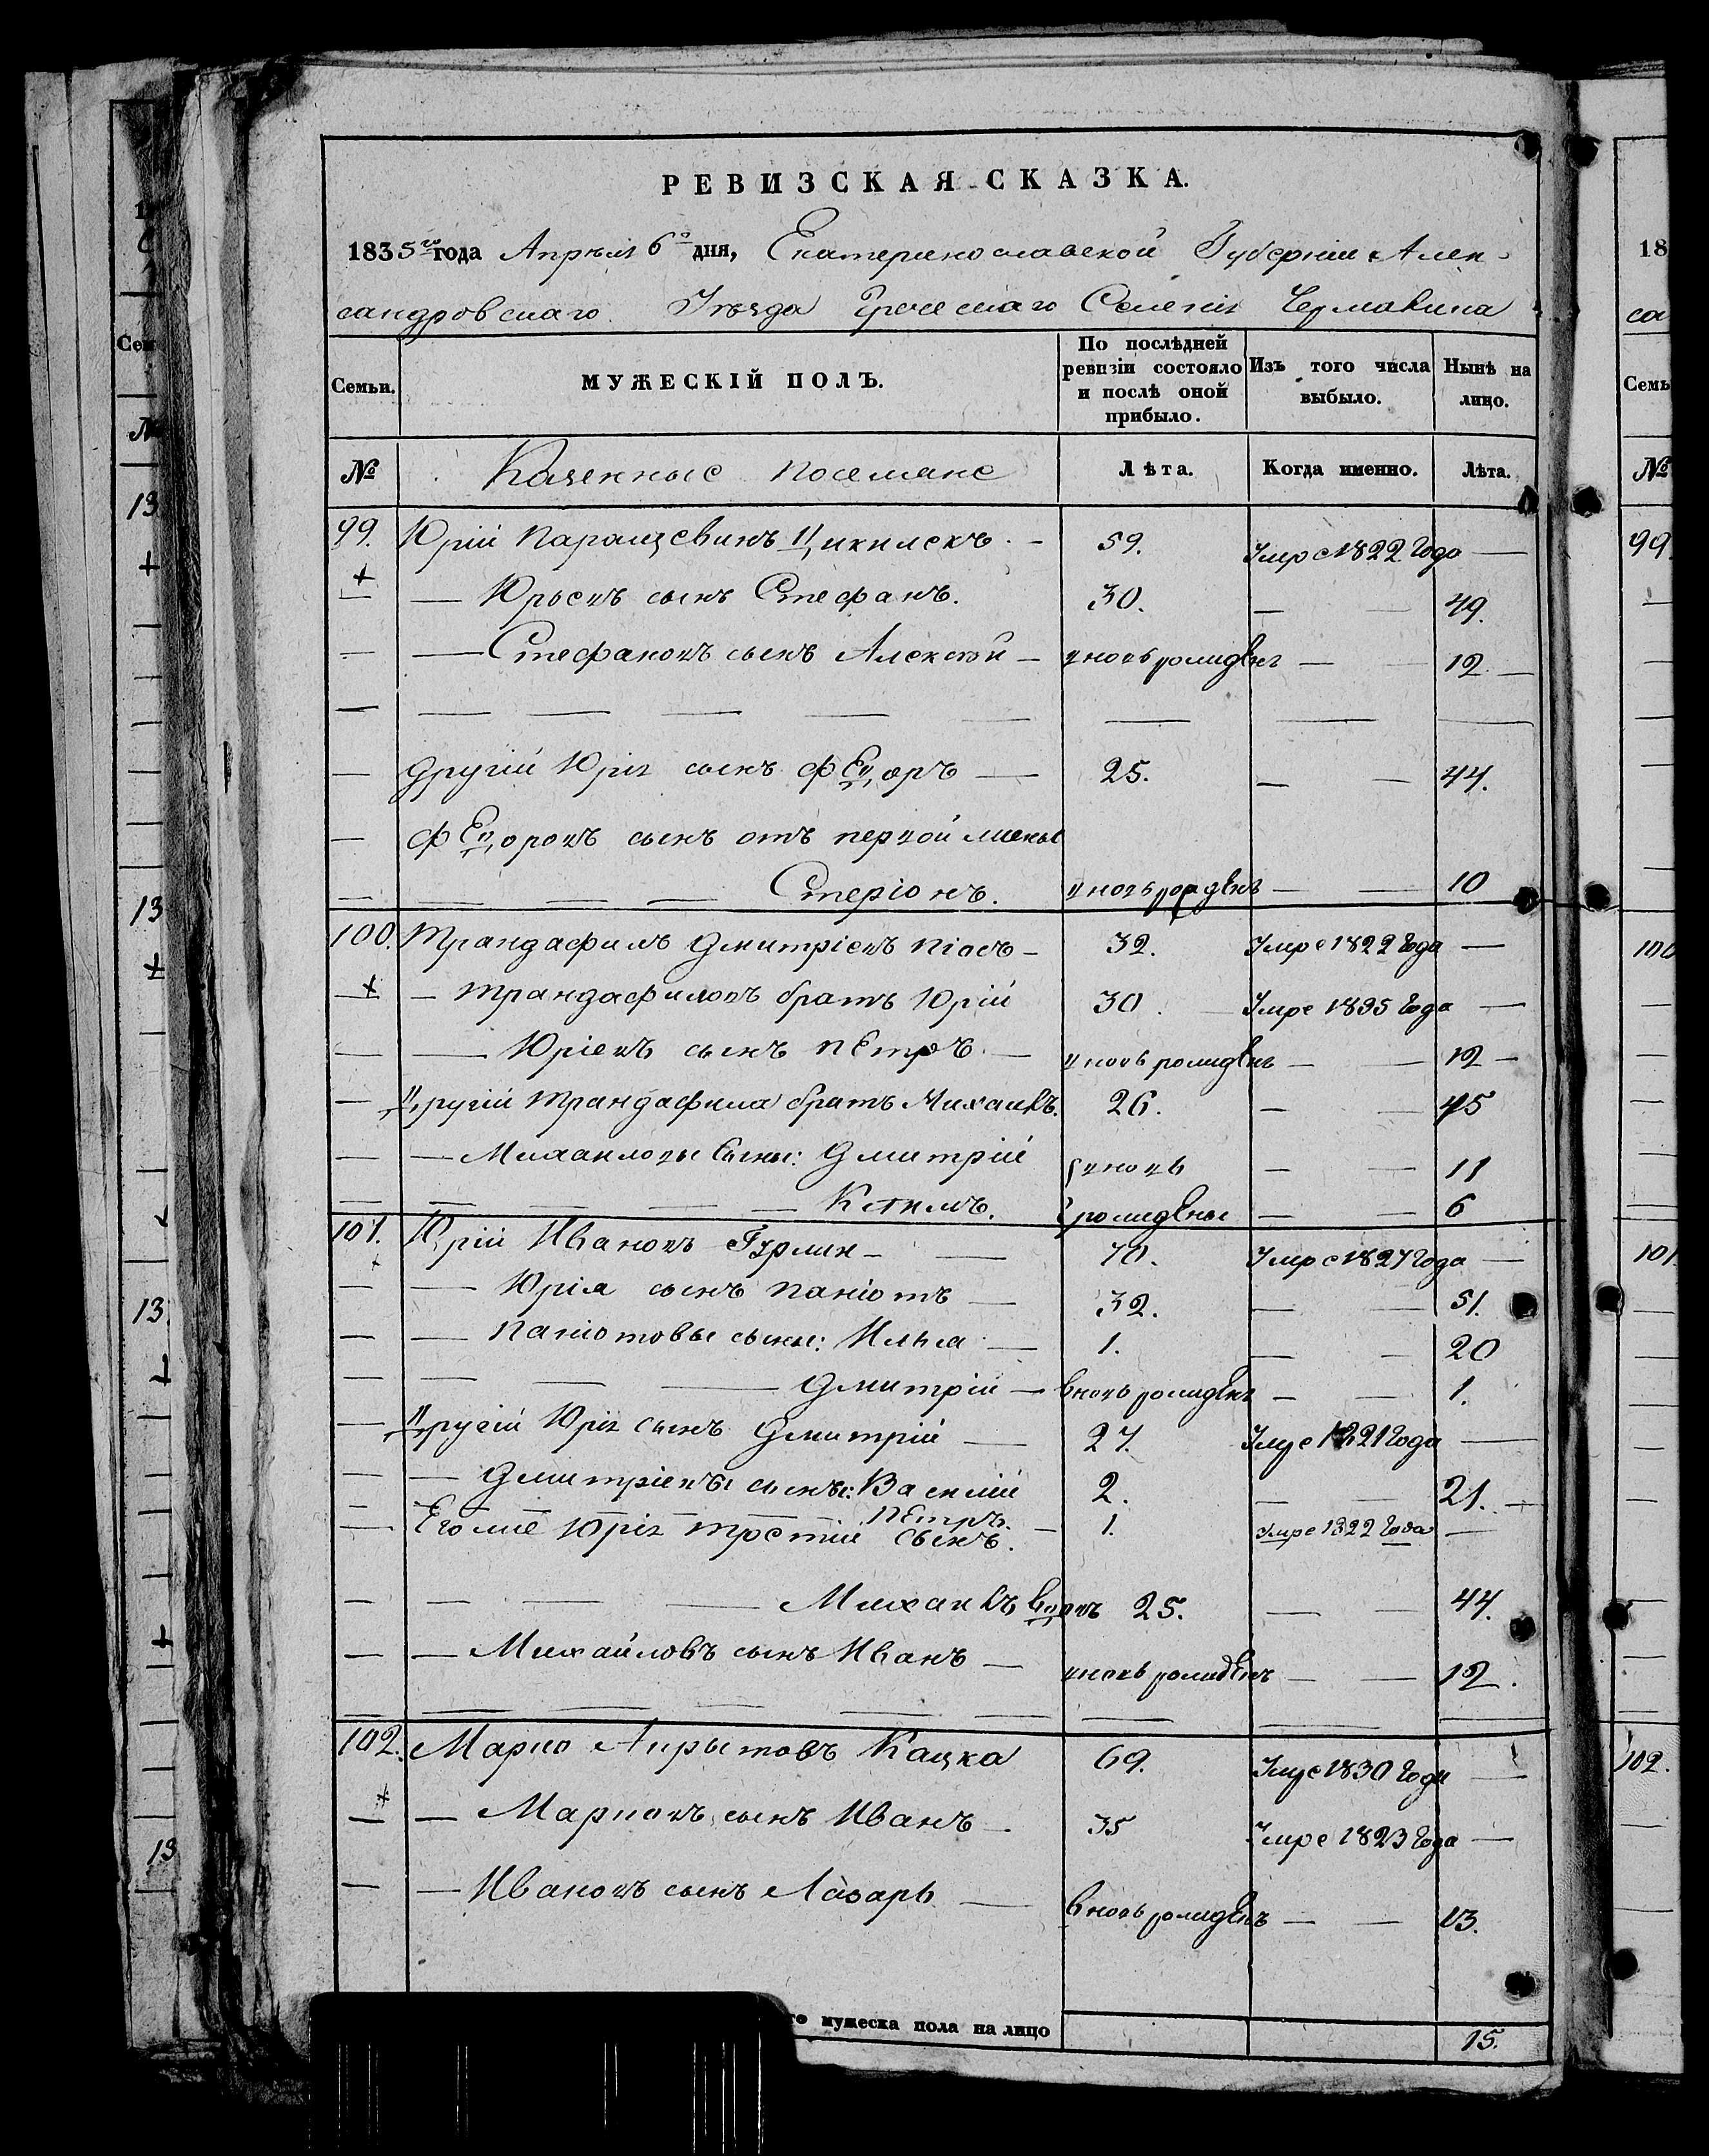 РЕВИЗСКАЯ СКАЗКА.
1835го года Апрѣля 6о дня, Екатеринославской Губерніи Алек-
сандровскаго Уѣзда Греческаго Селенія Чермалика
Семьи.
МУЖЕСКІЙ ПОЛЪ.
По послѣдней ревизіи состояло и послѣ оной прибыло.
Изъ того числа выбыло.
Нынѣ на лицо.
№ Казенные поселяне Лѣта. Когда именно. Лѣта.
99. Юрій 59. Умре 1822 Года
Юрьевъ сынъ Стефанъ. 30. 49.
Стефановъ сынъ Алексѣй вновь рожденъ 12
Другій Юрія сынъ Федоръ 25. 44.
Федоровъ сынъ отъ первой жены
Стеріонъ. вновь рожденъ 10
100. Трандафилъ Дмитріевъ Піосъ 32. Умре 1822 Года
Трандафиловъ братъ Юрій 30. Умре 1835 Года
Юріевъ сынъ Петръ вновь рожденъ 12
Другій Трандафила братъ Михаилъ. 26. 45
Михаиловы Сыны: Дмитрій вновь 11
рождены 6
101. Юрій Ивановъ 70. Умре 1827 Года
Юрія сынъ Паніотъ 32. 51.
Паніотовы сыны: Илья 1. 20
Дмитрій вновь рожденъ 1.
Другій Юрія сынъ Дмитрій 27. Умре 1821 Года
Дмитріевы сыны: Василій 2. 21.
Петръ. 1. Умре 1822 Года
Его же Юрія третій сынъ.
Михаилъ вдовъ 25. 44.
Михайловъ сынъ Иванъ вновь рожденъ 12.
102. Марко Кацка 69. Умре 1830 Года
Марковъ сынъ Иванъ 35 Умре 1823 Года
Ивановъ сынъ Лазарь вновь рожденъ 13.
мужеска пола на лицо 15.
18
са
Семь
№
99.
100
101.
102.
13
13
13.
13